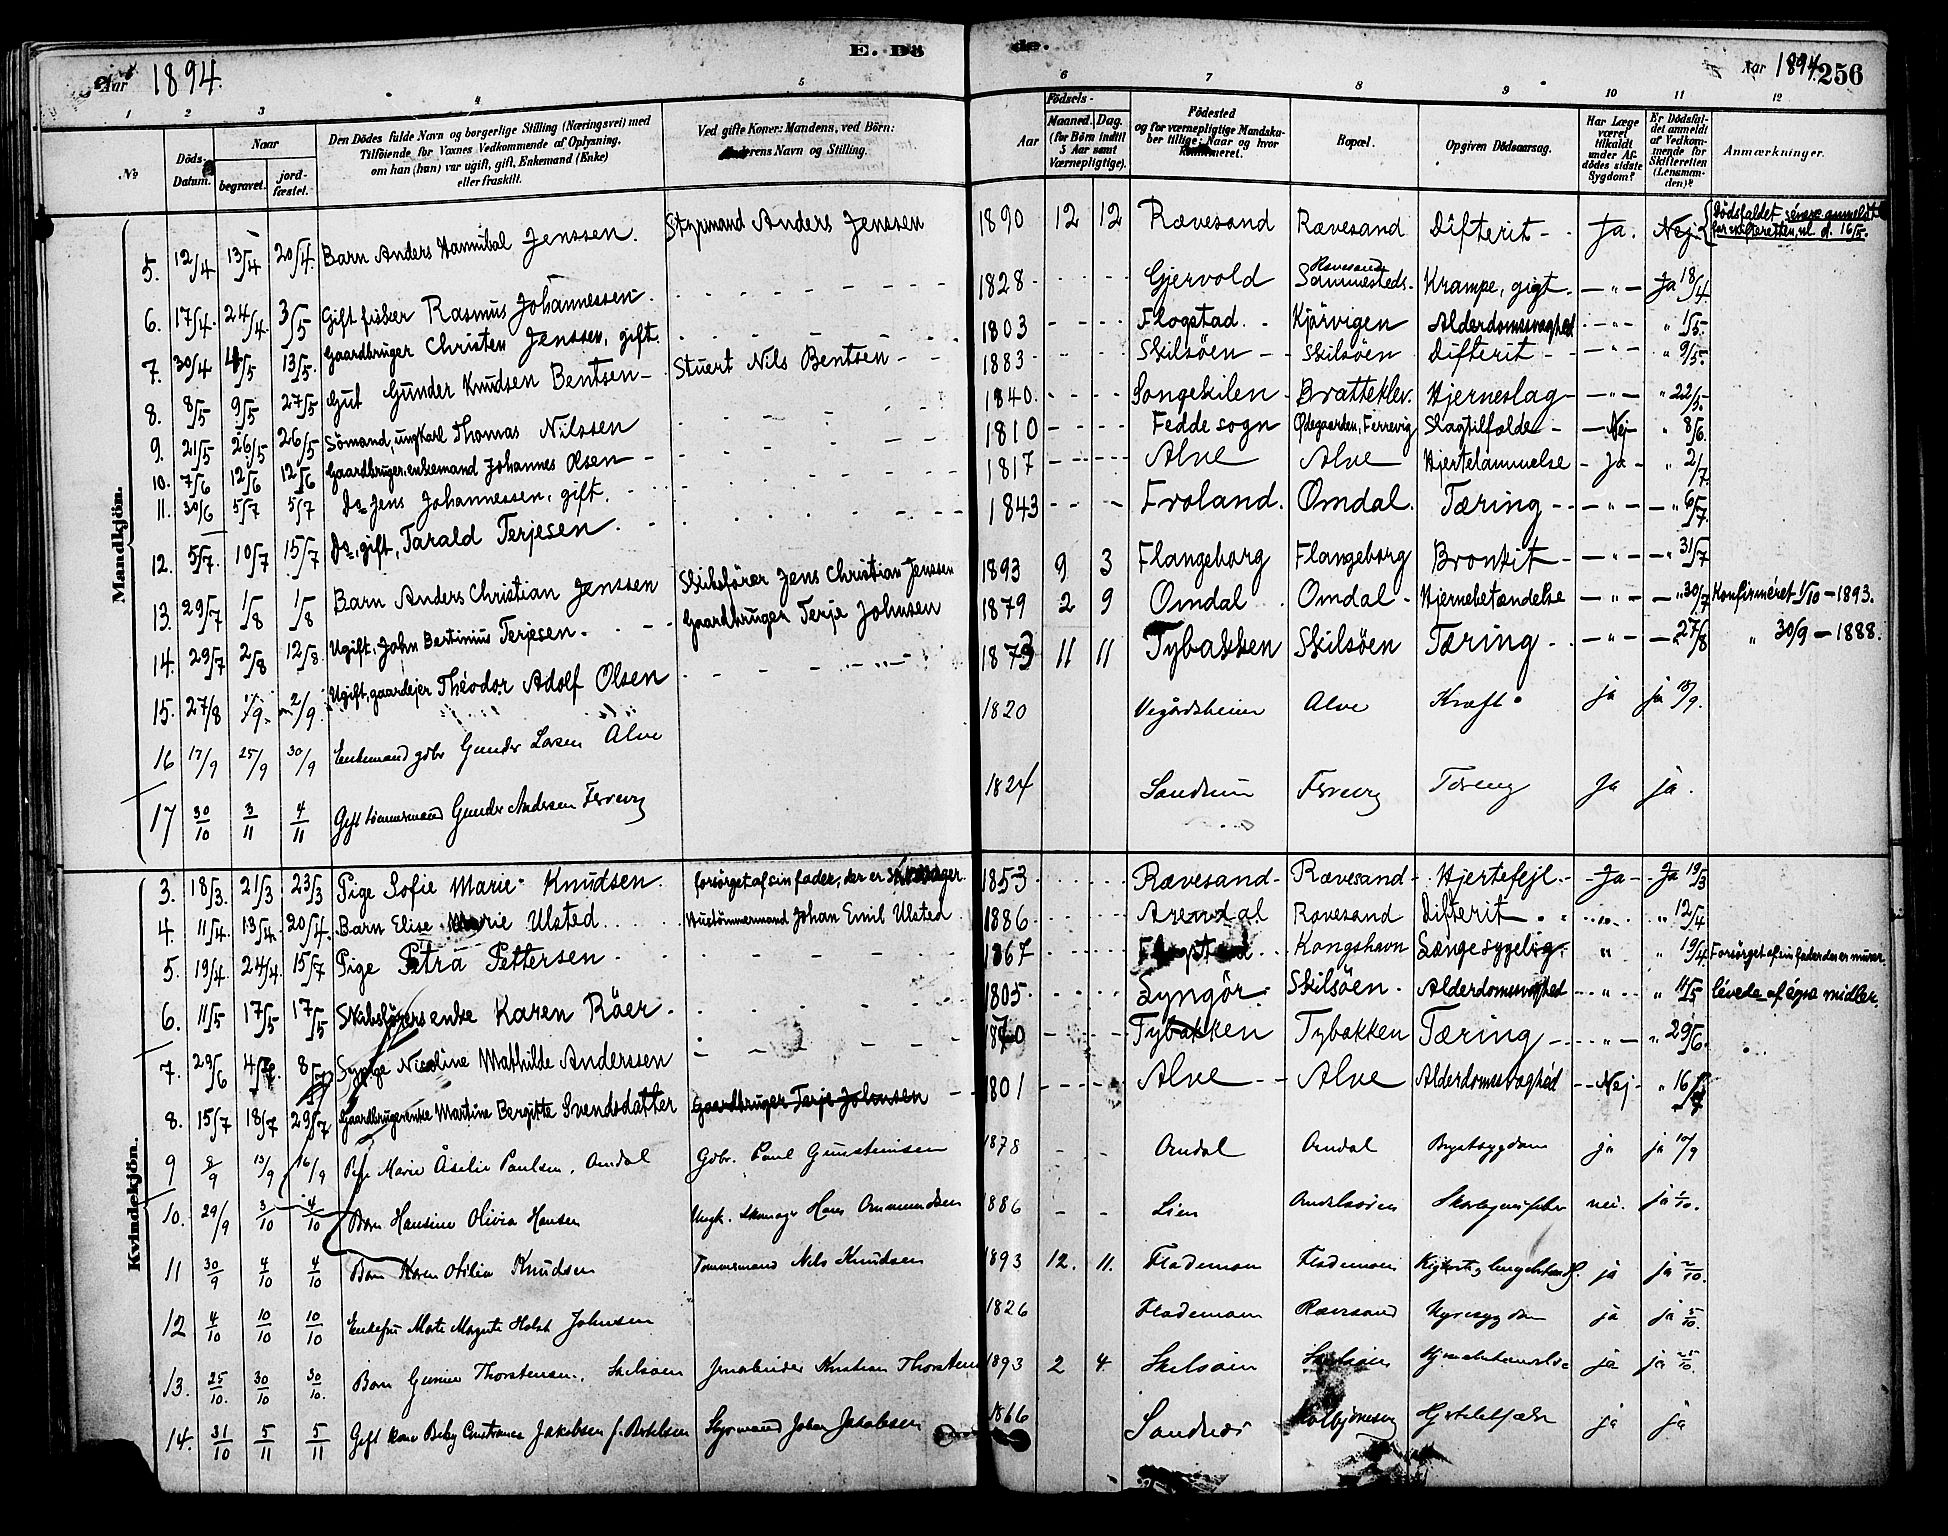 Aar 1894.
E. Dö de.
Aar 1894. 256
1 2 3 4 5 6 7 8 9 10 11 12
No
Döds-Datum.
Naar
begravet.
jordfæstet.
Den Dödes fulde Navn og borgerlige Stilling (Næringsvei) med
Tilföiende for Voxnes Vedkommende af Oplysning,
om han (hun) var ugift, gift, Enkemand (Enke)
eller fraskilt.
Ved gifte Koner: Mandens, ved Börn:
Faderens Navn og Stilling.
Födsels-
Aar
Maaned.
Dag.
(for Börn indtil
5 Aar samt
Værnepligtige).
Födested
og for værnepligtige Mandska-
ber tillige: Naar og hvor
Bopæl.
Opgiven Dödsaarsag.
Har Læge
været
tilkaldt
under Af-
dödes sidste
Sygdom?
Er Dödsfal-
det anmeldt
af Vedkom-
mende for
Skifteretten
(Lensman-
den)?
Anmærkninger.
Mandkjön.
5. 12/4 13/4 20/4. Barn Anders Hannibal Jenssen. Styrmand Anders Jenssen 1890 12 12 Rævesand Rævesand Difterit Ja. Nej Dödsfaldet 16/5.
6. 17/4. 24/4. 3/5 Gift fisker Rasmus Johannessen 1828 Gjervold Rævesand Sammesteds Krampe, gigt. " Ja 18/4
7. 30/4 4/5 13/5. Gaardbruger Christen Jenssen, gift. 1803 Flogstad. Kjörvigen Alderdomssvaghed " " 1/5
8. 8/5 9/5 27/5 Gut Gunder Knudsen Bentsen Stuert Nils Bentsen 1883 Skilsöen Skilsöen Difterit " " 9/5.
9. 21/5 26/5 26/5 Sömand, ungkarl Thomas Nilssen 1840 Songekilen Bratteklev. Hjerneslag " " 22/5.
10. 7/6 12/6 12/6 Gaardbruger, enkemand Johannes Olsen 1810 Fedde sogn Ödegaarden, Ferrevig Slagtilfælde Nej " 8/6.
11. 30/6 5/7 5/7 Do Jens Johannessen, gift. 1817 Alve Alve Hjertelammelse Ja " 2/7.
12. 5/7. 10/7 15/7 Do, gift, Tarald Terjesen. 1843 Froland. Omdal. Tæring " " 6/7.
13. 29/7 1/8 1/8 Barn Anders Christian Jenssen Skibsförer Jens Christian Jenssen 1893 9 3 Flangeborg Flangeborg Bronkit " " 31/7
14. 29/7 2/8 12/8. Ugift, John Bertinius Terjesen. Gaardbruger Terje Johnsen 1879 2 9 Omdal Omdal Hjernebetændelse " " 30/7 Konfirmeret 1/10 - 1893.
15. 27/8 1/9. 2/9. Ugift, gaardejer Théodor Adolf Olsen 1873 11 11 Tybakken Skilsöen Tæring " 27/8 " 30/9 - 1888.
16 17/9 25/9 30/9 Enkemand gdbr Gunder Larsen Alve 1820 Vegårdsheien Alve Kræft ja ja 18/9.
17 30/10 3/11 4/11 Gift tömmermand Gunder Andersen Ferrevig 1824 Ferrevig Ja ja.
Kvindekjön.
3. 18/3. 21/3 23/3 Pige Sofie Marie Knudsen. forsörget af sin fader, der er 1853 Rævesand Rævesand Hjertefejl Ja Ja 19/3
4. 11/4. 13/4. 20/4. Barn Elise Marie Ulsted. Hustömmermand Johan Emil Ulsted 1886 Arendal Rævesand Difterit " " 12/4
5. 19/4 24/4. 15/7 Pige Petra Pettersen 1867 Kongshavn Længe sygelig. " " 19/4 Forsörget af sin fader der er murer.
6. 11/5 17/5 17/5 Skibsförers enke Karen Röer 1805 Lyngör Skilsöen Alderdomssvaghed " " 11/5 levede af egne midler
7. 29/6 4/7. 8/7 Sypige Nicoline Mathilde Anderssen Tybakken Tybakken Tæring " " 29/6.
8. 15/7 18/7 29/7 Gaardbrugerenke Martine Bergitte Svendsdatter Gaardbruger Terje Johnsen 1801 Alve Alve Alderdomssvaghed Nej " 16/7
9 9/9 13/9 16/9 Pige Marie Åselie Paulsen, Omdal Gdbr. Paul Gunsteinsen 1878 Omdal Omdal Brystsygdom ja ja 10/9
10. 29/9 3/10 4/10 Barn Hansine Olivia Hansen Ungk. Skomager Hans Ommundsen 1886 Lien nei. ja 1/10.
11 30/9 4/10 4/10 Barn Karen Otilia Knudsen Tömmermand Nils Knudsen 1893 12. 11. Flademoen Flademoen ja ja 2/10.
12 4/10 10/10 10/10 Enkefru Johnsen 1826 Flademoen Rævesand Nyresygdom ja ja 5/10.
13. 25/10. 30/10 30/10. Barn Gunine Thorstensen, Skilsöen Kristian Thorstensen 1893 2 4. Skilsöen Skilsöen ja ja 25/10.
14. 31/10 5/11 5/11 Gift kone Jakobsen f. Bertelsen Styrmand Johan Jakobsen 1866 Kolbjörnsvig ja ja